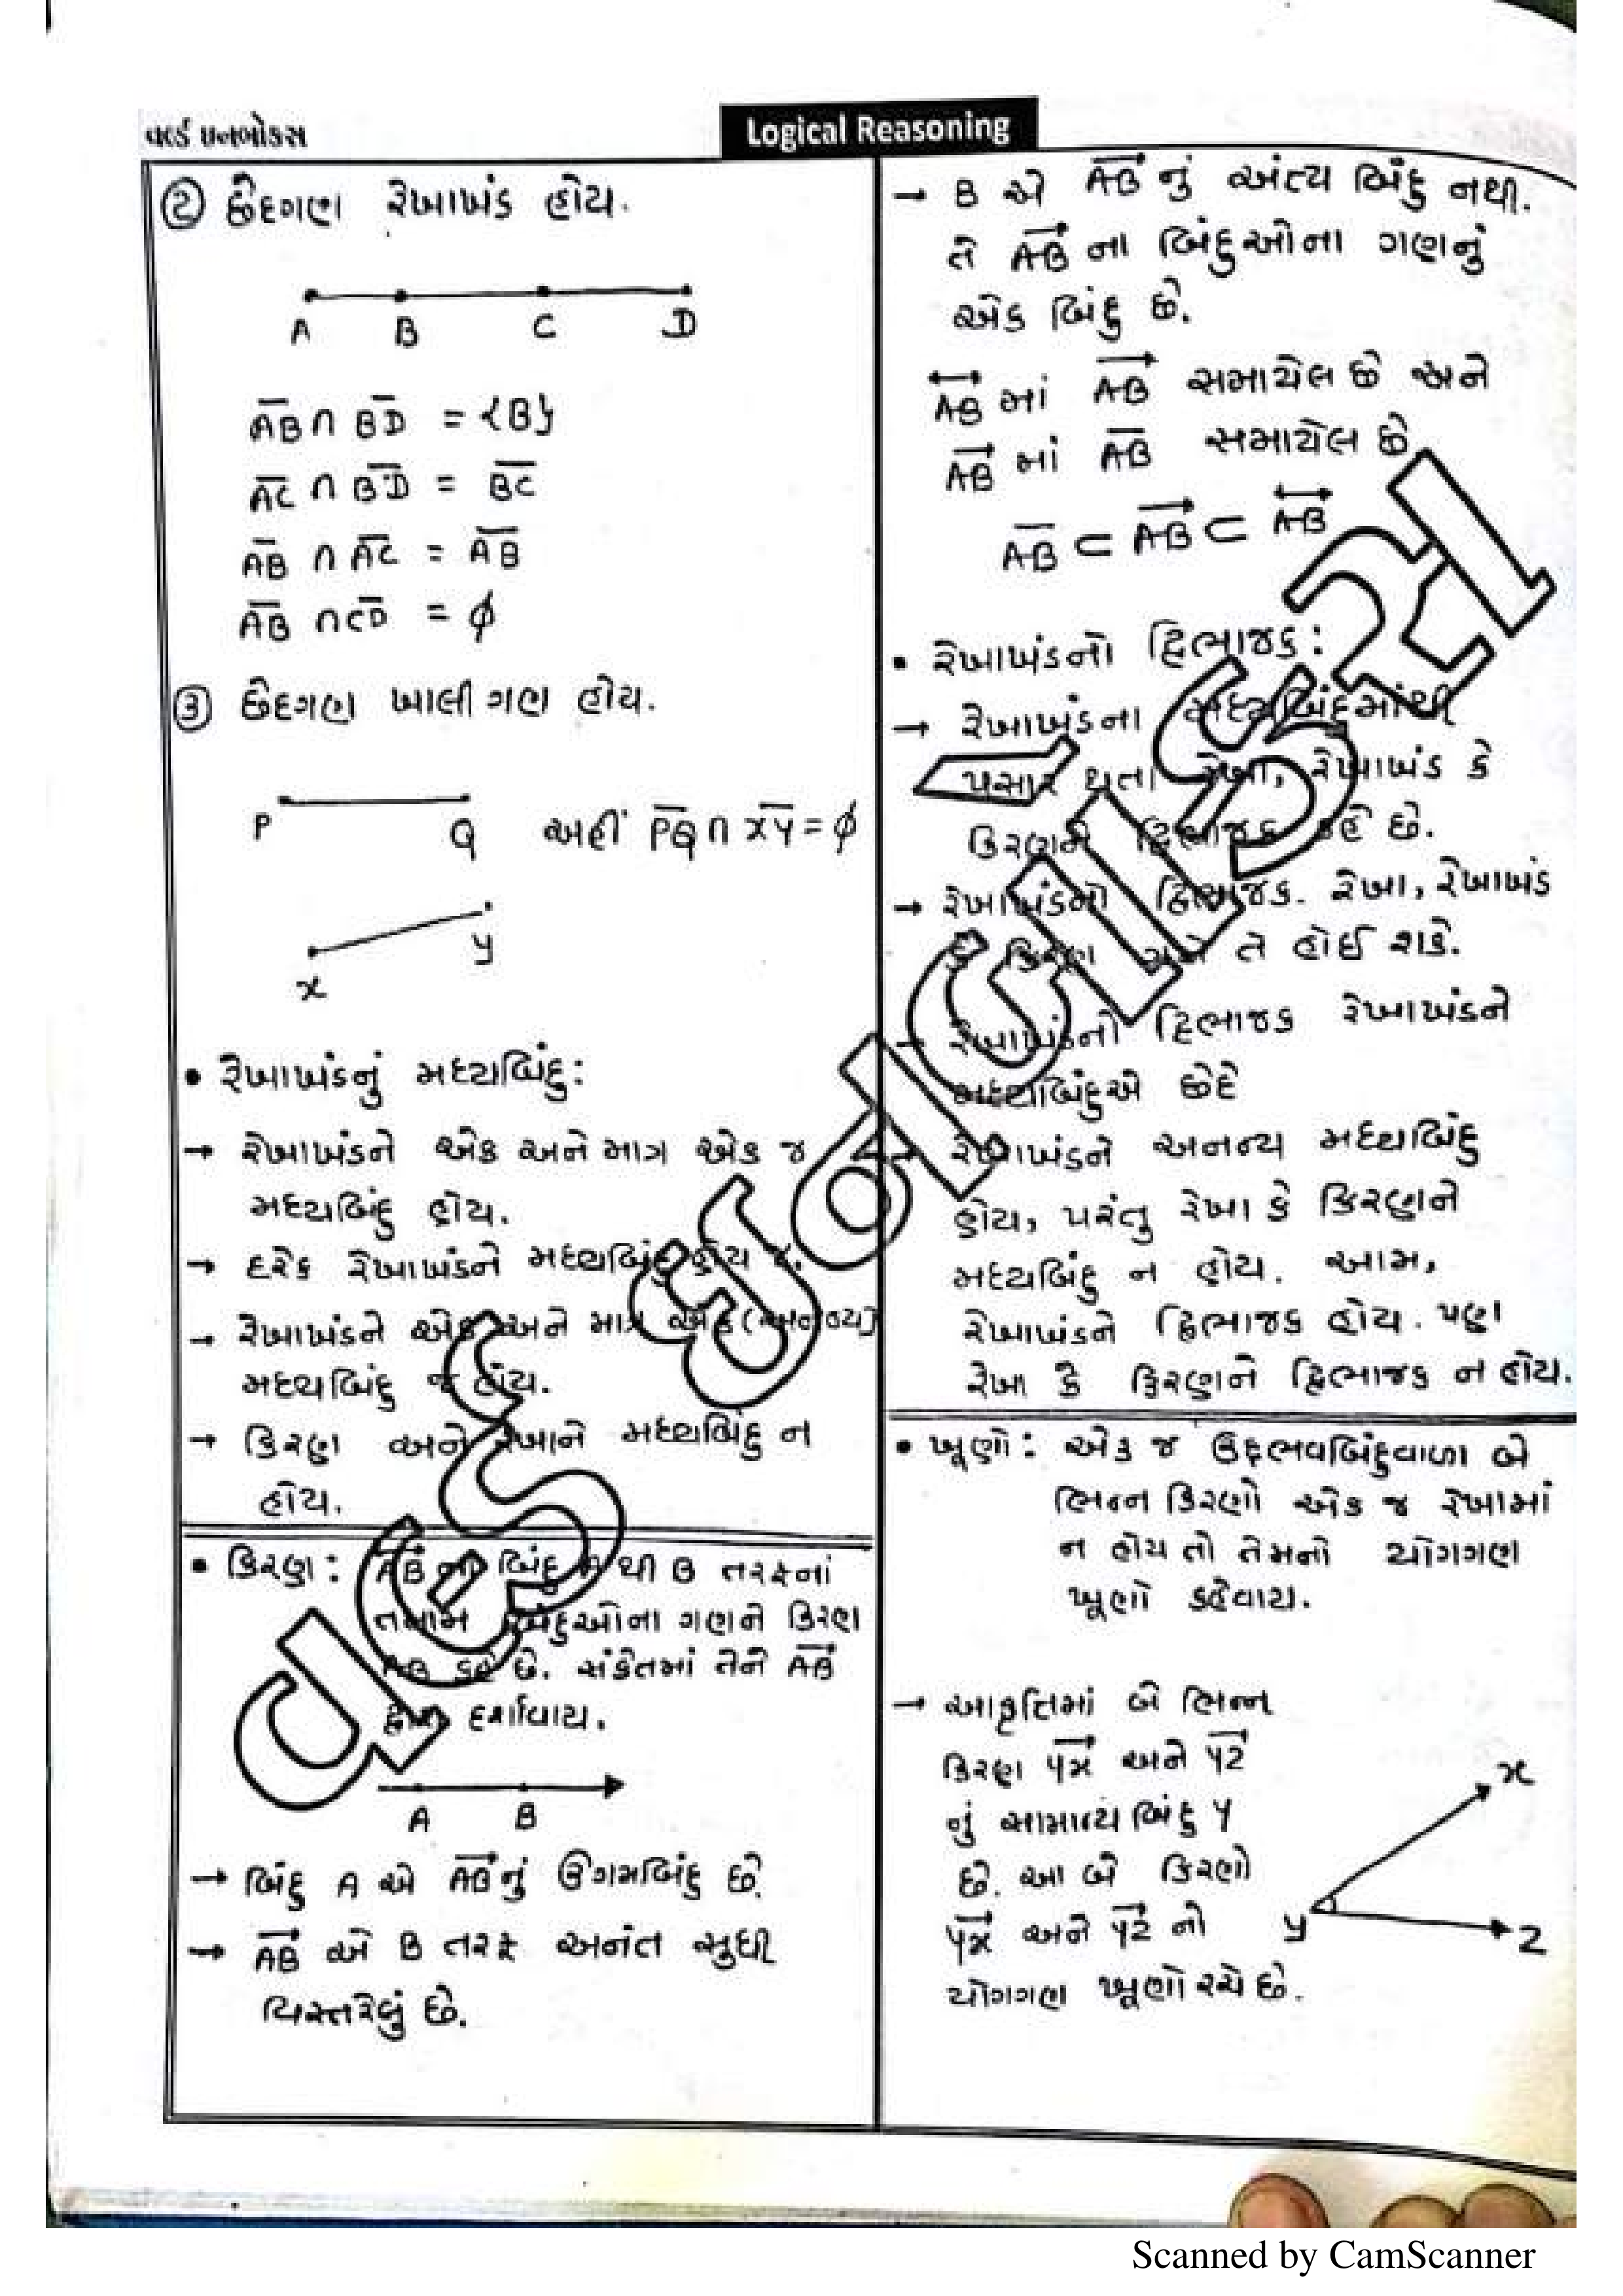 વર્લ્ડ ઇનબોકસ
Logical Reasoning
② છેદગણ રેખાખંડ હોય.
A B C D
A̅B̅ ∩ B̅D̅ = {B}
A̅C̅ ∩ B̅D̅ = B̅C̅
A̅B̅ ∩ A̅C̅ = A̅B̅
A̅B̅ ∩ C̅D̅ = ϕ
③ છેદગણ ખાલી ગણ હોય.
P Q અહીં P̅Q̅ ∩ X̅Y̅ = ϕ
x y
• રેખાખંડનું મધ્યબિંદુ:
→ રેખાખંડને એક અને માત્ર એક જ
મધ્યબિંદુ હોય.
→ દરેક રેખાખંડને મધ્યબિંદુ હોય જ.
→ રેખાખંડને એક અને માત્ર એક (અનન્ય)
મધ્યબિંદુ જ હોય.
→ કિરણ અને રેખાને મધ્યબિંદુ ન
હોય.
• કિરણ: બિંદુ A થી B તરફનાં
તમામ બિંદુઓના ગણને કિરણ
AB કહે છે. સંકેતમાં તેને A⃗B⃗
દ્વારા દર્શાવાય.
A B
→ બિંદુ A એ A⃗B⃗ નું ઉગમબિંદુ છે.
→ A⃗B⃗ એ B તરફ અનંત સુધી
વિસ્તરેલું છે.
→ B એ A⃗B⃗ નું અંત્ય બિંદુ નથી.
તે A⃗B⃗ ના બિંદુઓના ગણનું
એક બિંદુ છે.
A⃡B⃡ માં A⃗B⃗ સમાયેલ છે અને
A⃗B⃗ માં A̅B̅ સમાયેલ છે
A̅B̅ ⊂ A⃗B⃗ ⊂ A⃡B⃡
• રેખાખંડનો દ્વિભાજક:
→ રેખાખંડના મધ્યબિંદુમાંથી
પસાર થતા રેખા, રેખાખંડ કે
કિરણને દ્વિભાજક કહે છે.
→ રેખાખંડનો દ્વિભાજક. રેખા, રેખાખંડ
કે કિરણ ગમે તે હોઈ શકે.
→ રેખાખંડનો દ્વિભાજક રેખાખંડને
મધ્યબિંદુએ છેદે
→ રેખાખંડને અનન્ય મધ્યબિંદુ
હોય, પરંતુ રેખા કે કિરણને
મધ્યબિંદુ ન હોય. આમ,
રેખાખંડને દ્વિભાજક હોય. પણ
રેખા કે કિરણને દ્વિભાજક ન હોય.
• ખૂણો: એક જ ઉદ્દભવબિંદુવાળા બે
ભિન્ન કિરણો એક જ રેખામાં
ન હોય તો તેમનો યોગગણ
ખૂણો કહેવાય.
→ આકૃતિમાં બે ભિન્ન
કિરણ Y⃗X⃗ અને Y⃗Z⃗
નું સામાન્ય બિંદુ Y
છે. આ બે કિરણો
Y⃗X⃗ અને Y⃗Z⃗ નો
યોગગણ ખૂણો રચે છે.
x
y
z
Scanned by CamScanner